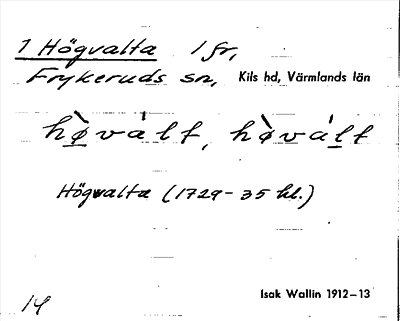 1 Högvalta 1 fr,
Frykeruds sn, Kils hd, Värmlands län
hø̱̀vált, hø̀váḻt
Högvalta (1729-35 kl.)
Isak Wallin 1912-13
14